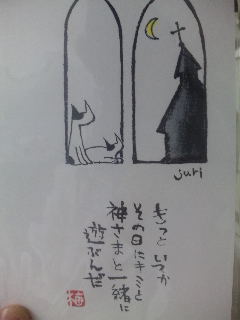 juri
きっといつか
その日にキミと
神さまと一緒に
遊ぶんだ
梅